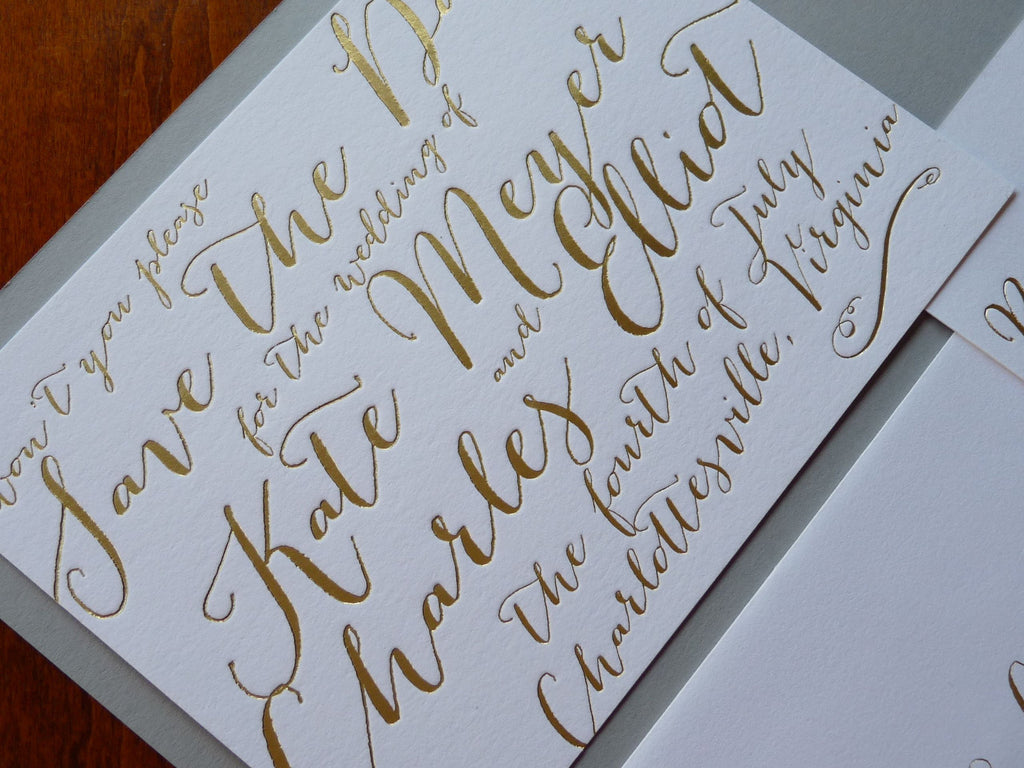 won't you please
Save the
for the wedding of
Kate Meyer
and
Charles Elliot
the fourth of July
Charlottesville, Virginia